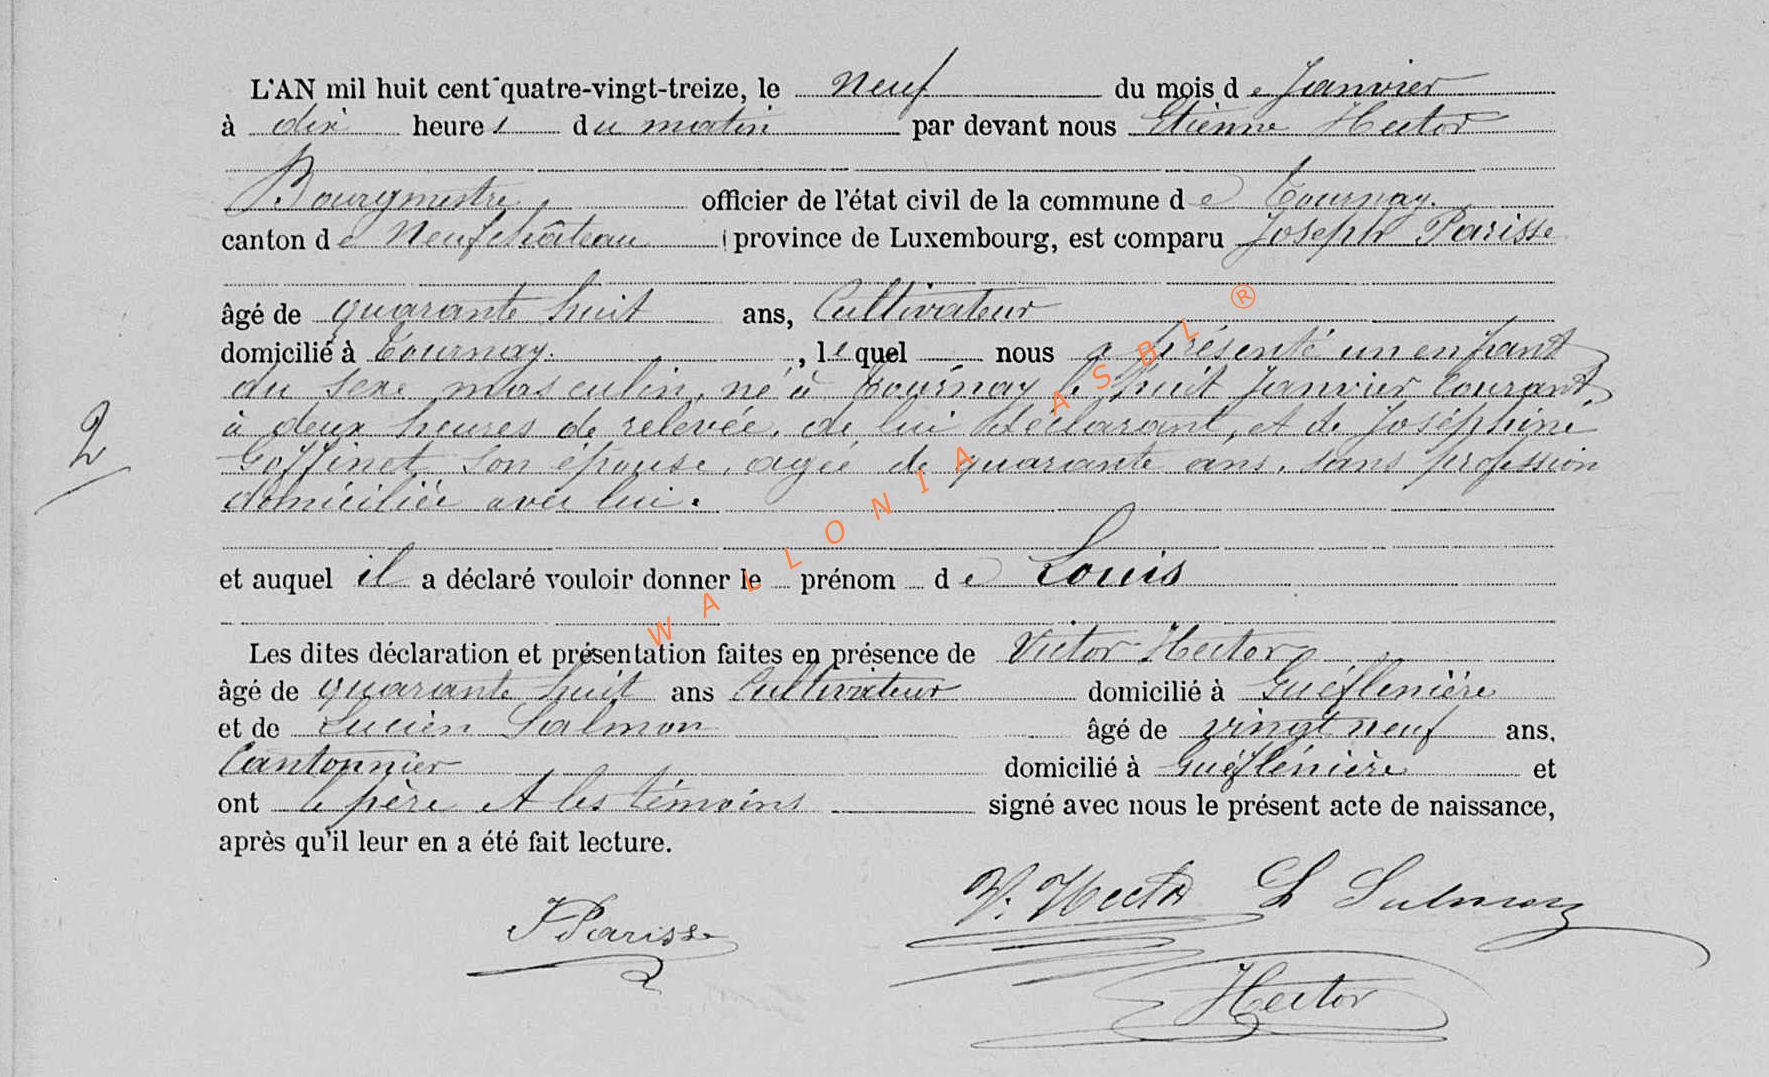 L'AN mil huit cent quatre-vingt-treize, le neuf du mois de Janvier
à dix heures du matin par devant nous Etienne Hector
Bourgmestre officier de l'état civil de la commune de Tournay.
canton de Neufchâteau province de Luxembourg, est comparu Joseph Parisse
âgé de quarante huit ans, Cultivateur
domicilié à Tournay. , lequel nous a présenté un enfant
du sexe masculin, né à Tournay le huit Janvier courant,
2
à deux heures de relevée, de lui déclarant, et de Joséphine
Goffinet son épouse, agée de quarante ans, sans profession
domiciliée avec lui.
et auquel il a déclaré vouloir donner le prénom de Louis
Les dites déclaration et présentation faites en présence de Victor Hector
âgé de quarante huit ans Cultivateur domicilié à Guéflenière
et de Lucien Salmon âgé de vingt neuf ans,
Cantonnier domicilié à Guéflénière et
ont le père et les témoins signé avec nous le présent acte de naissance,
après qu'il leur en a été fait lecture.
V. Hector L Salmon
J Parisse
Hector
WALLONIA ASBL ®